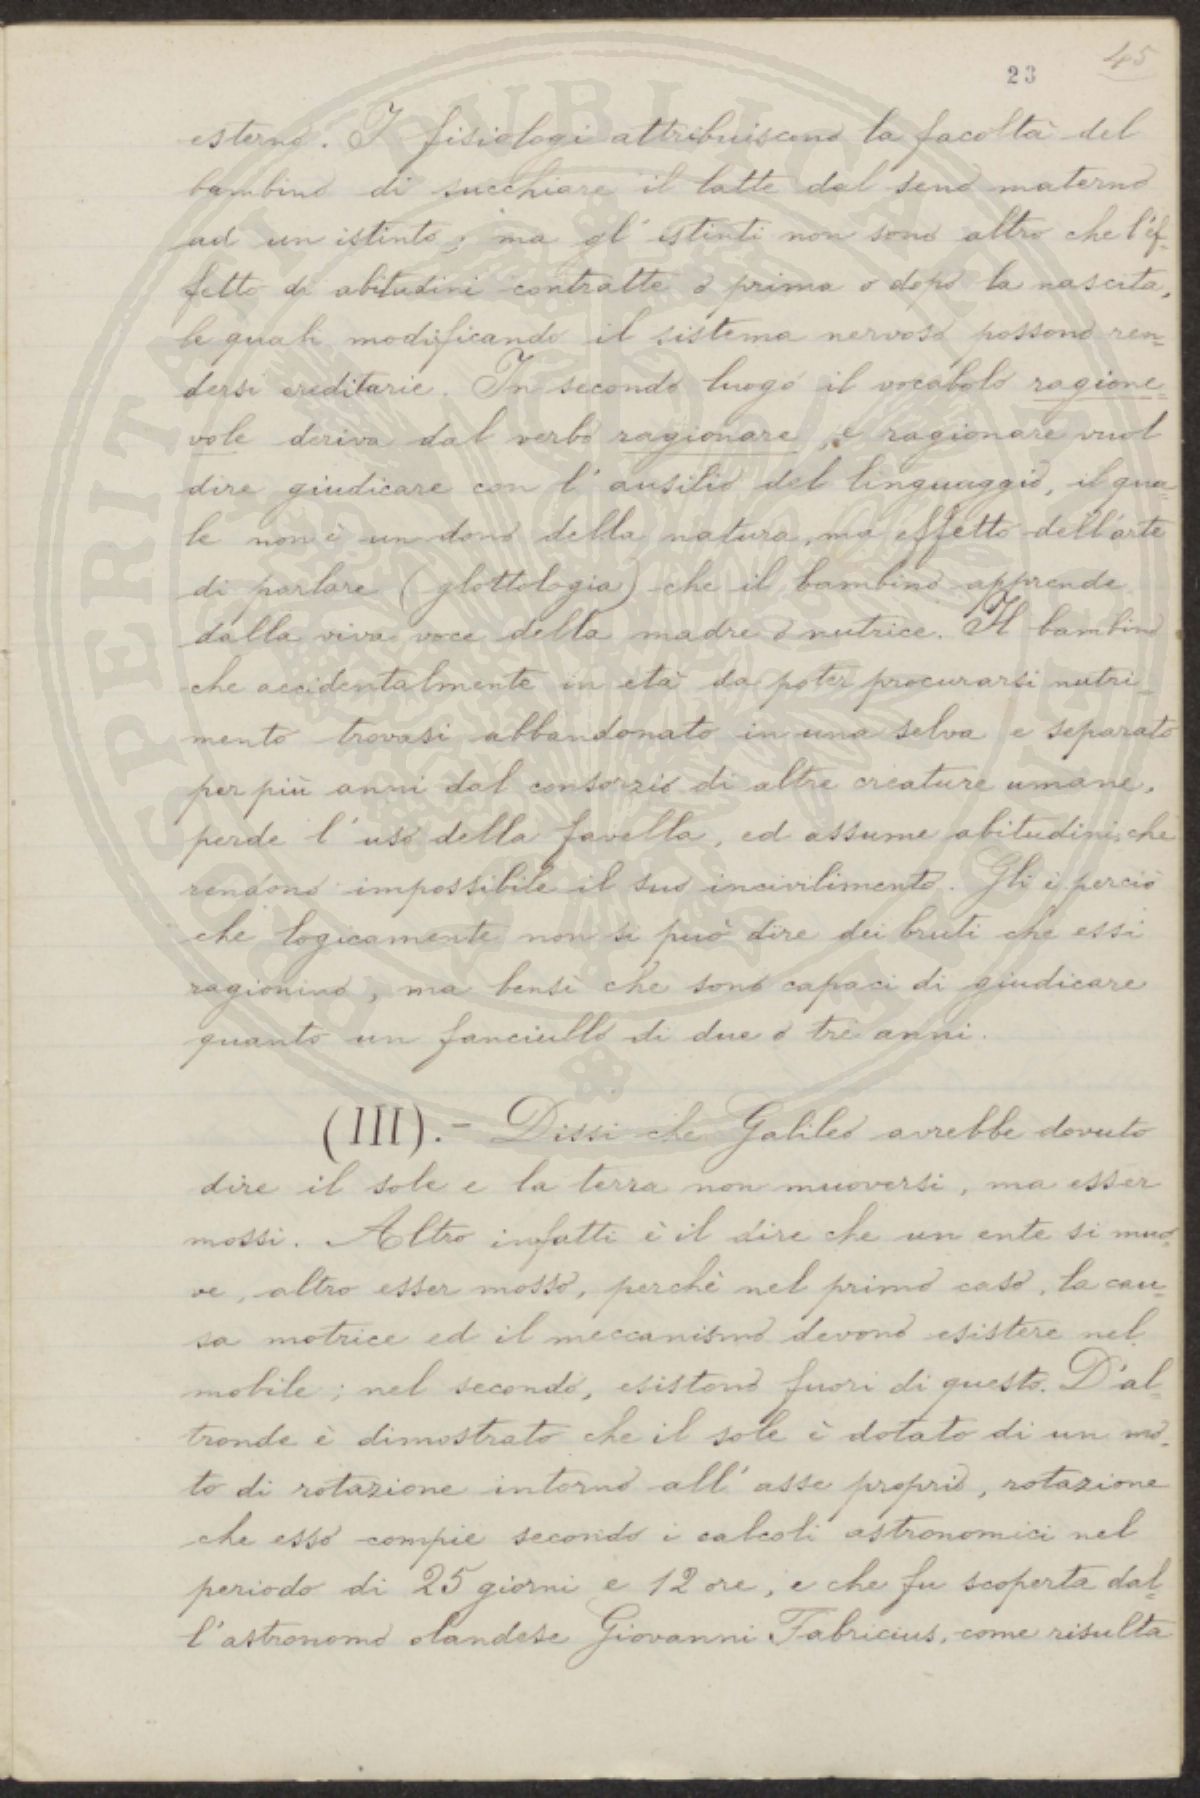 45
23
esterno. I fisiologi attribuiscono la facoltà del
bambino di succhiare il latte dal seno materno
ad un istinto; ma gl'istinti non sono altro che l'ef=
fetto di abitudini contratte o prima o dopo la nascita,
le quali modificando il sistema nervoso possono ren=
dersi ereditarie. In secondo luogo il vocabolo ragione=
vole deriva dal verbo ragionare, e ragionare vuol
dire giudicare con l'ausilio del linguaggio, il qua=
le non è un dono della natura, ma effetto dell'arte
di parlare (glottologia) che il bambino apprende
dalla viva voce della madre o nutrice. Il bambino
che accidentalmente in età da poter procurarsi nutri=
mento trovasi abbandonato in una selva e separato
per più anni dal consorzio di altre creature umane,
perde l'uso della favella, ed assume abitudini, che
rendono impossibile il suo incivilimento. Gli è perciò
che logicamente non si può dire dei bruti che essi
ragionino, ma bensì che sono capaci di giudicare
quanto un fanciullo di due o tre anni.
(III).- Dissi che Galileo avrebbe dovuto
dire il sole e la terra non muoversi, ma esser
mossi. Altro infatti è il dire che un ente si muo=
ve, altro esser mosso, perchè nel primo caso, la cau=
sa motrice ed il meccanismo devono esistere nel
mobile; nel secondo, esistono fuori di questo. D'al=
tronde è dimostrato che il sole è dotato di un mo=
to di rotazione intorno all'asse proprio, rotazione
che esso compie secondo i calcoli astronomici nel
periodo di 25 giorni e 12 ore, e che fu scoperta dal=
l'astronomo olandese Giovanni Fabricius, come risulta